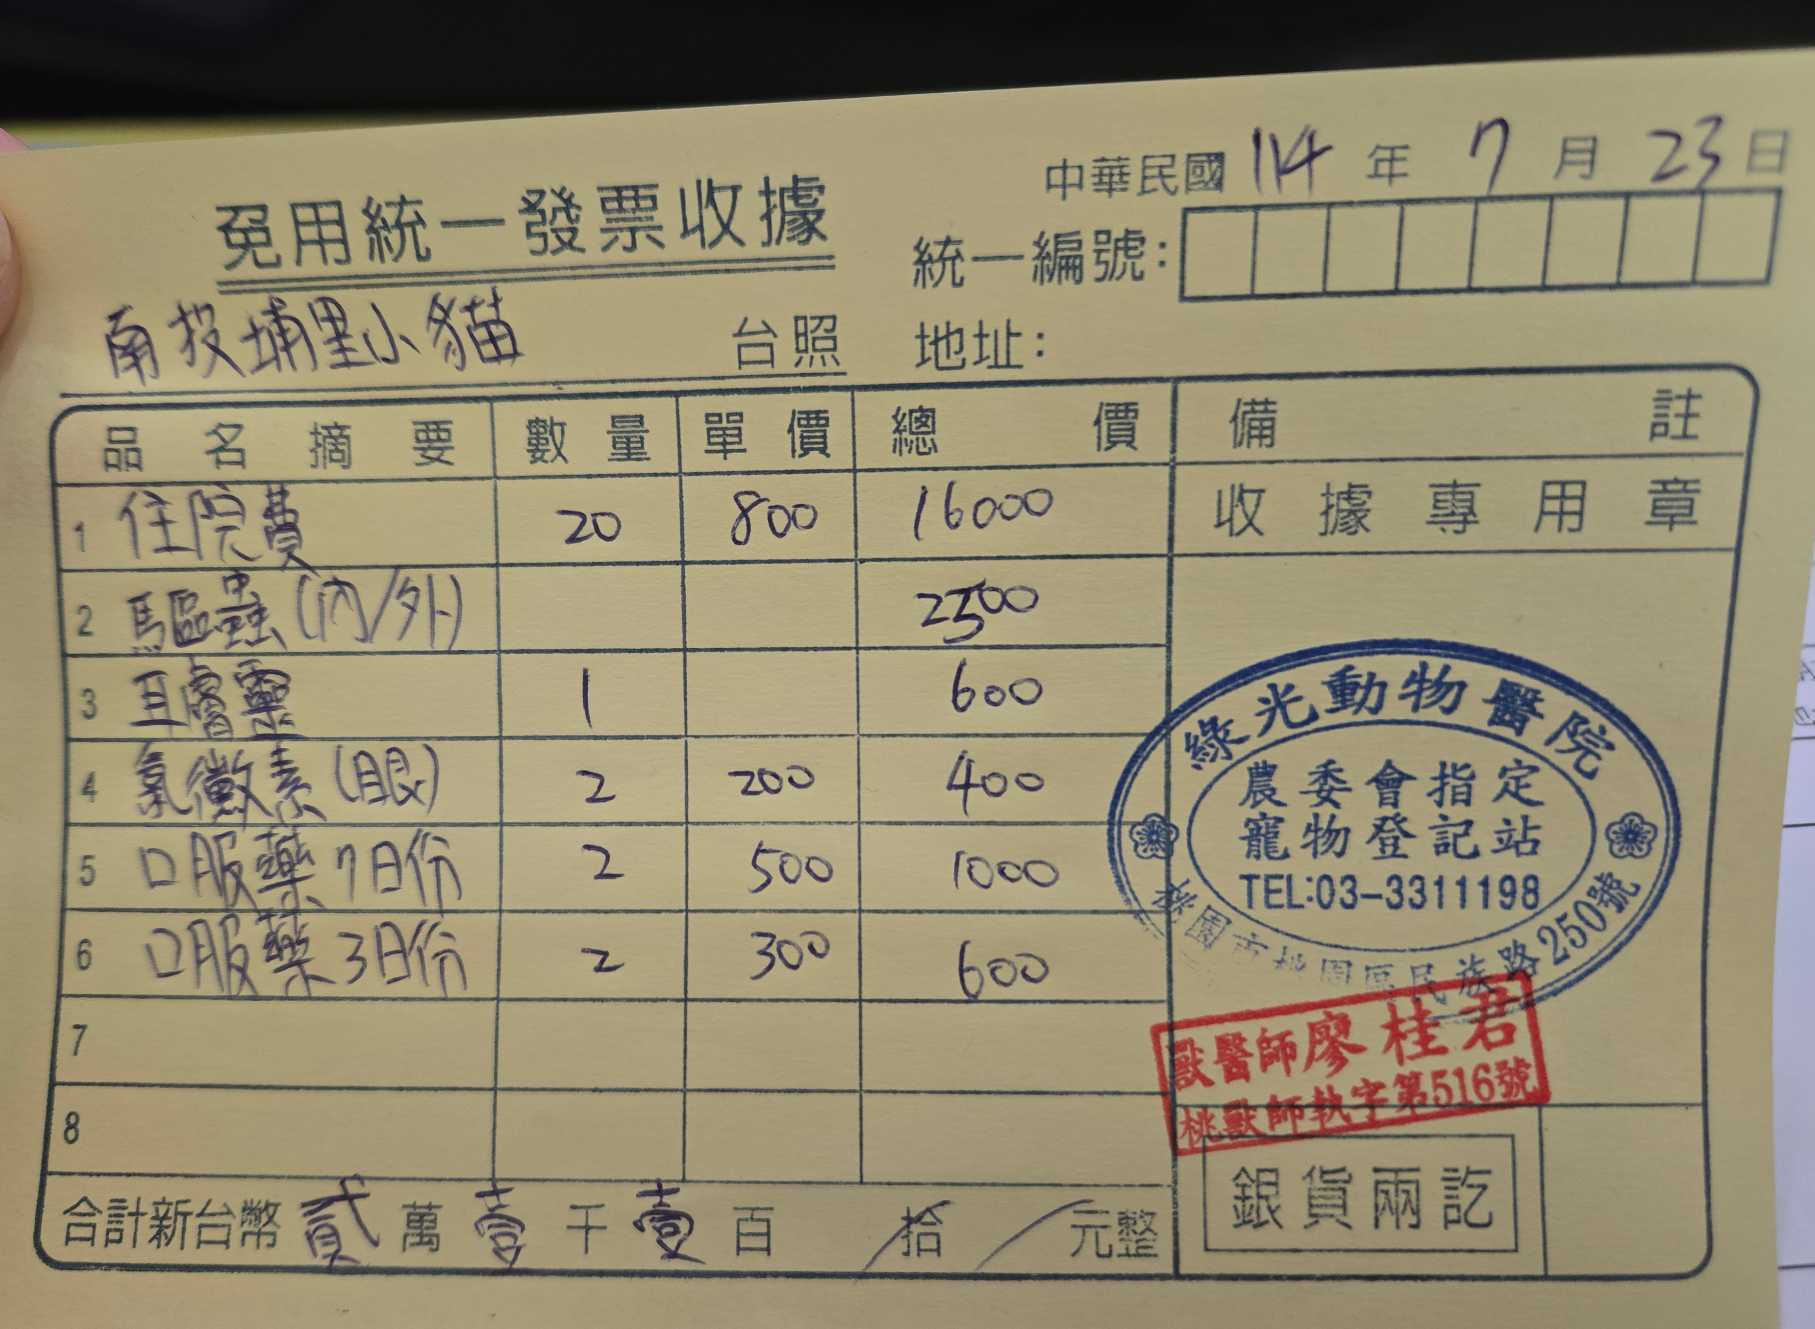 中華民國 114 年 7 月 23 日
免用統一發票收據
統一編號：
南投埔里小貓 台照
地址：
品名摘要 數量 單價 總價 備註
收據專用章
1 住院費 20 800 16000
2 驅蟲(內/外) 2500
3 耳膚靈 1 600
4 氯黴素(眼) 2 200 400
5 口服藥7日份 2 500 1000
6 口服藥3日份 2 300 600
7
8
合計新台幣 貳 萬 壹 千 壹 百 / 拾 / 元整
綠光動物醫院
農委會指定
寵物登記站
TEL:03-3311198
桃園市桃園區民族路250號
獸醫師廖桂君
桃獸師執字第516號
銀貨兩訖